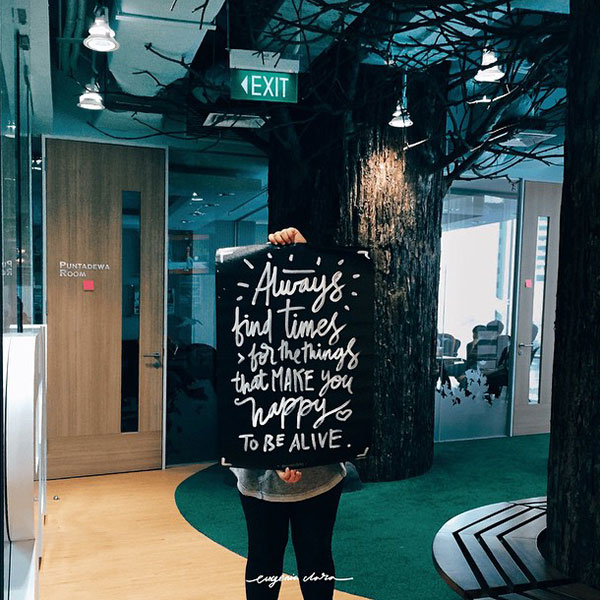 EXIT
PUNTADEWA
ROOM
Always
find times
for the things
that MAKE you
happy
TO BE ALIVE.
eugenia clara